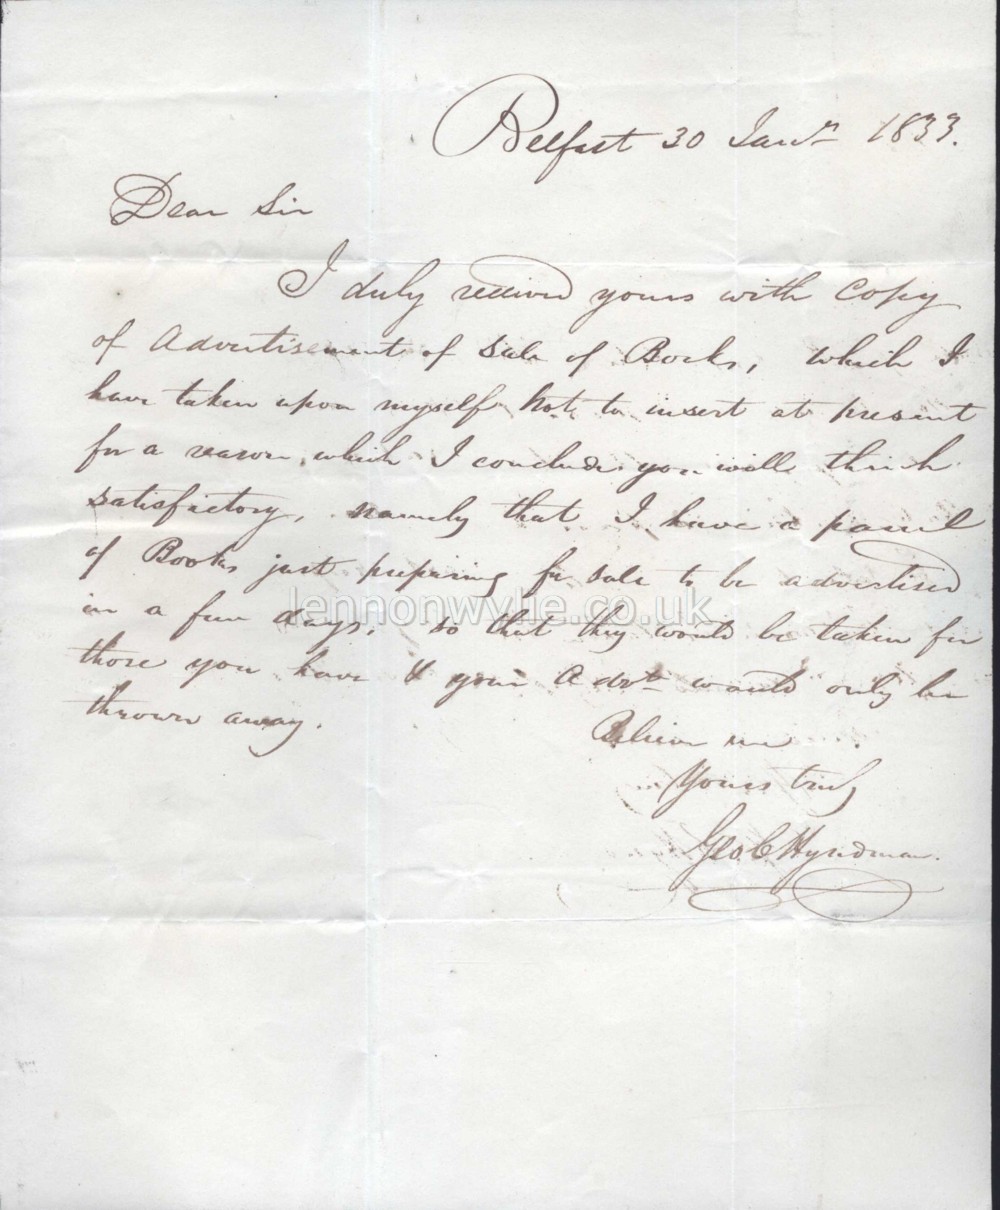 Belfast 30 Jany 1833.
Dear Sir
I duly received yours with Copy
of Advertisement of sale of Books, which I
have taken upon myself not to insert at present
for a reason which I conclude you will think
satisfactory, namely that I have a parcel
of Books just preparing for sale to be advertised
in a few days, so that they would be taken for
those you have & your Advt would only be
thrown away.
Believe me
Yours truly
Geo. C Hyndman.
lennonwylie.co.uk